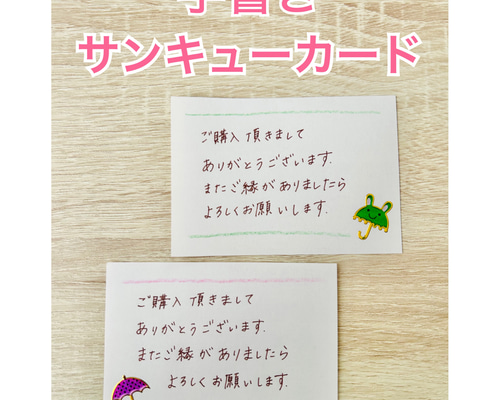 手書き
サンキューカード
ご購入頂きまして
ありがとうございます.
またご縁がありましたら
よろしくお願いします.
ご購入頂きまして
ありがとうございます.
またご縁がありましたら
よろしくお願いします.